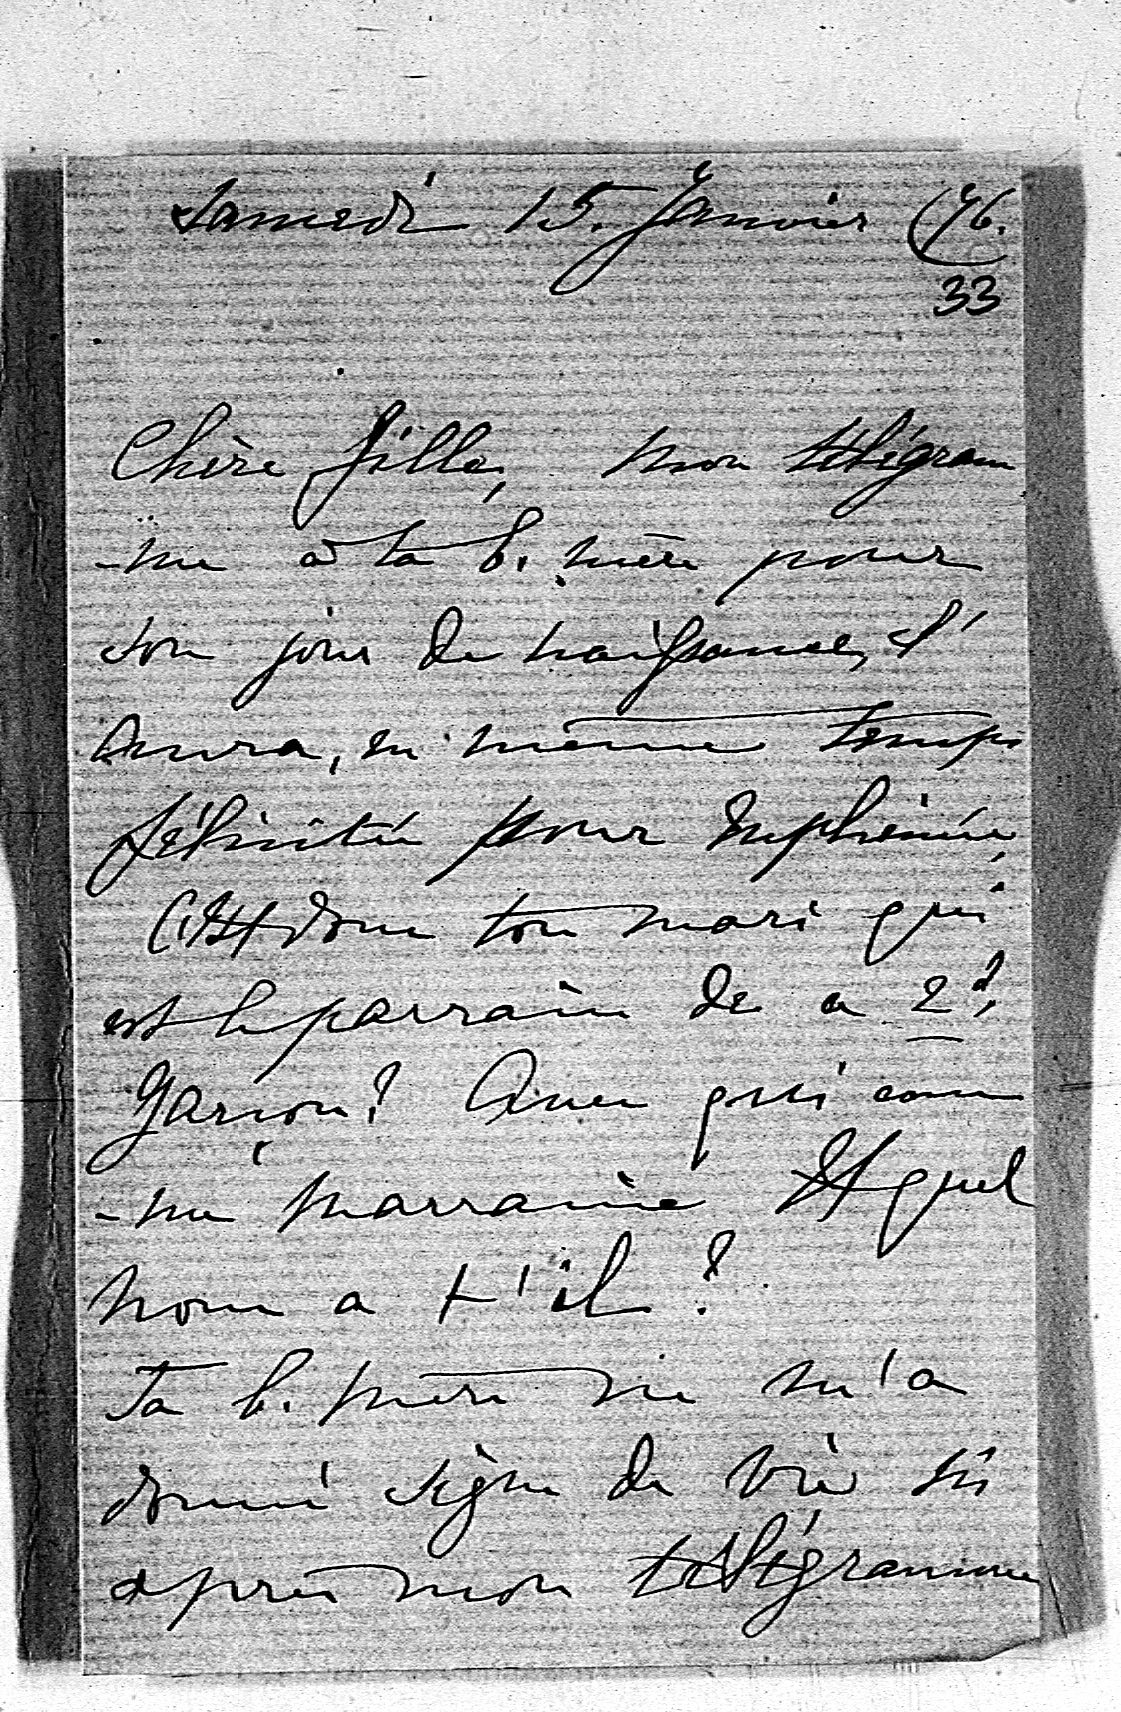 Samedi 15. Janvier (96.
33
Chère fille, mon télégram
-me à ta b. mère pour
son jour de naissance, l'
aura, en même temps
félicitée pour Euphémie,
C'est donc ton mari qui
est le parrain de a 2d
Garçon? Avec qui com
-me marraine Et quel
nom a t'il?
Ta b. mère ne m'a
donné signe de vie ni
après mon télégramme